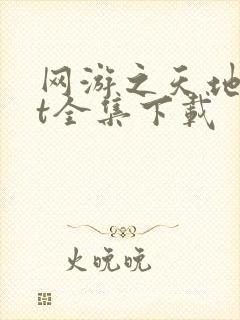 网游之天地
t全集下载
火晚晚